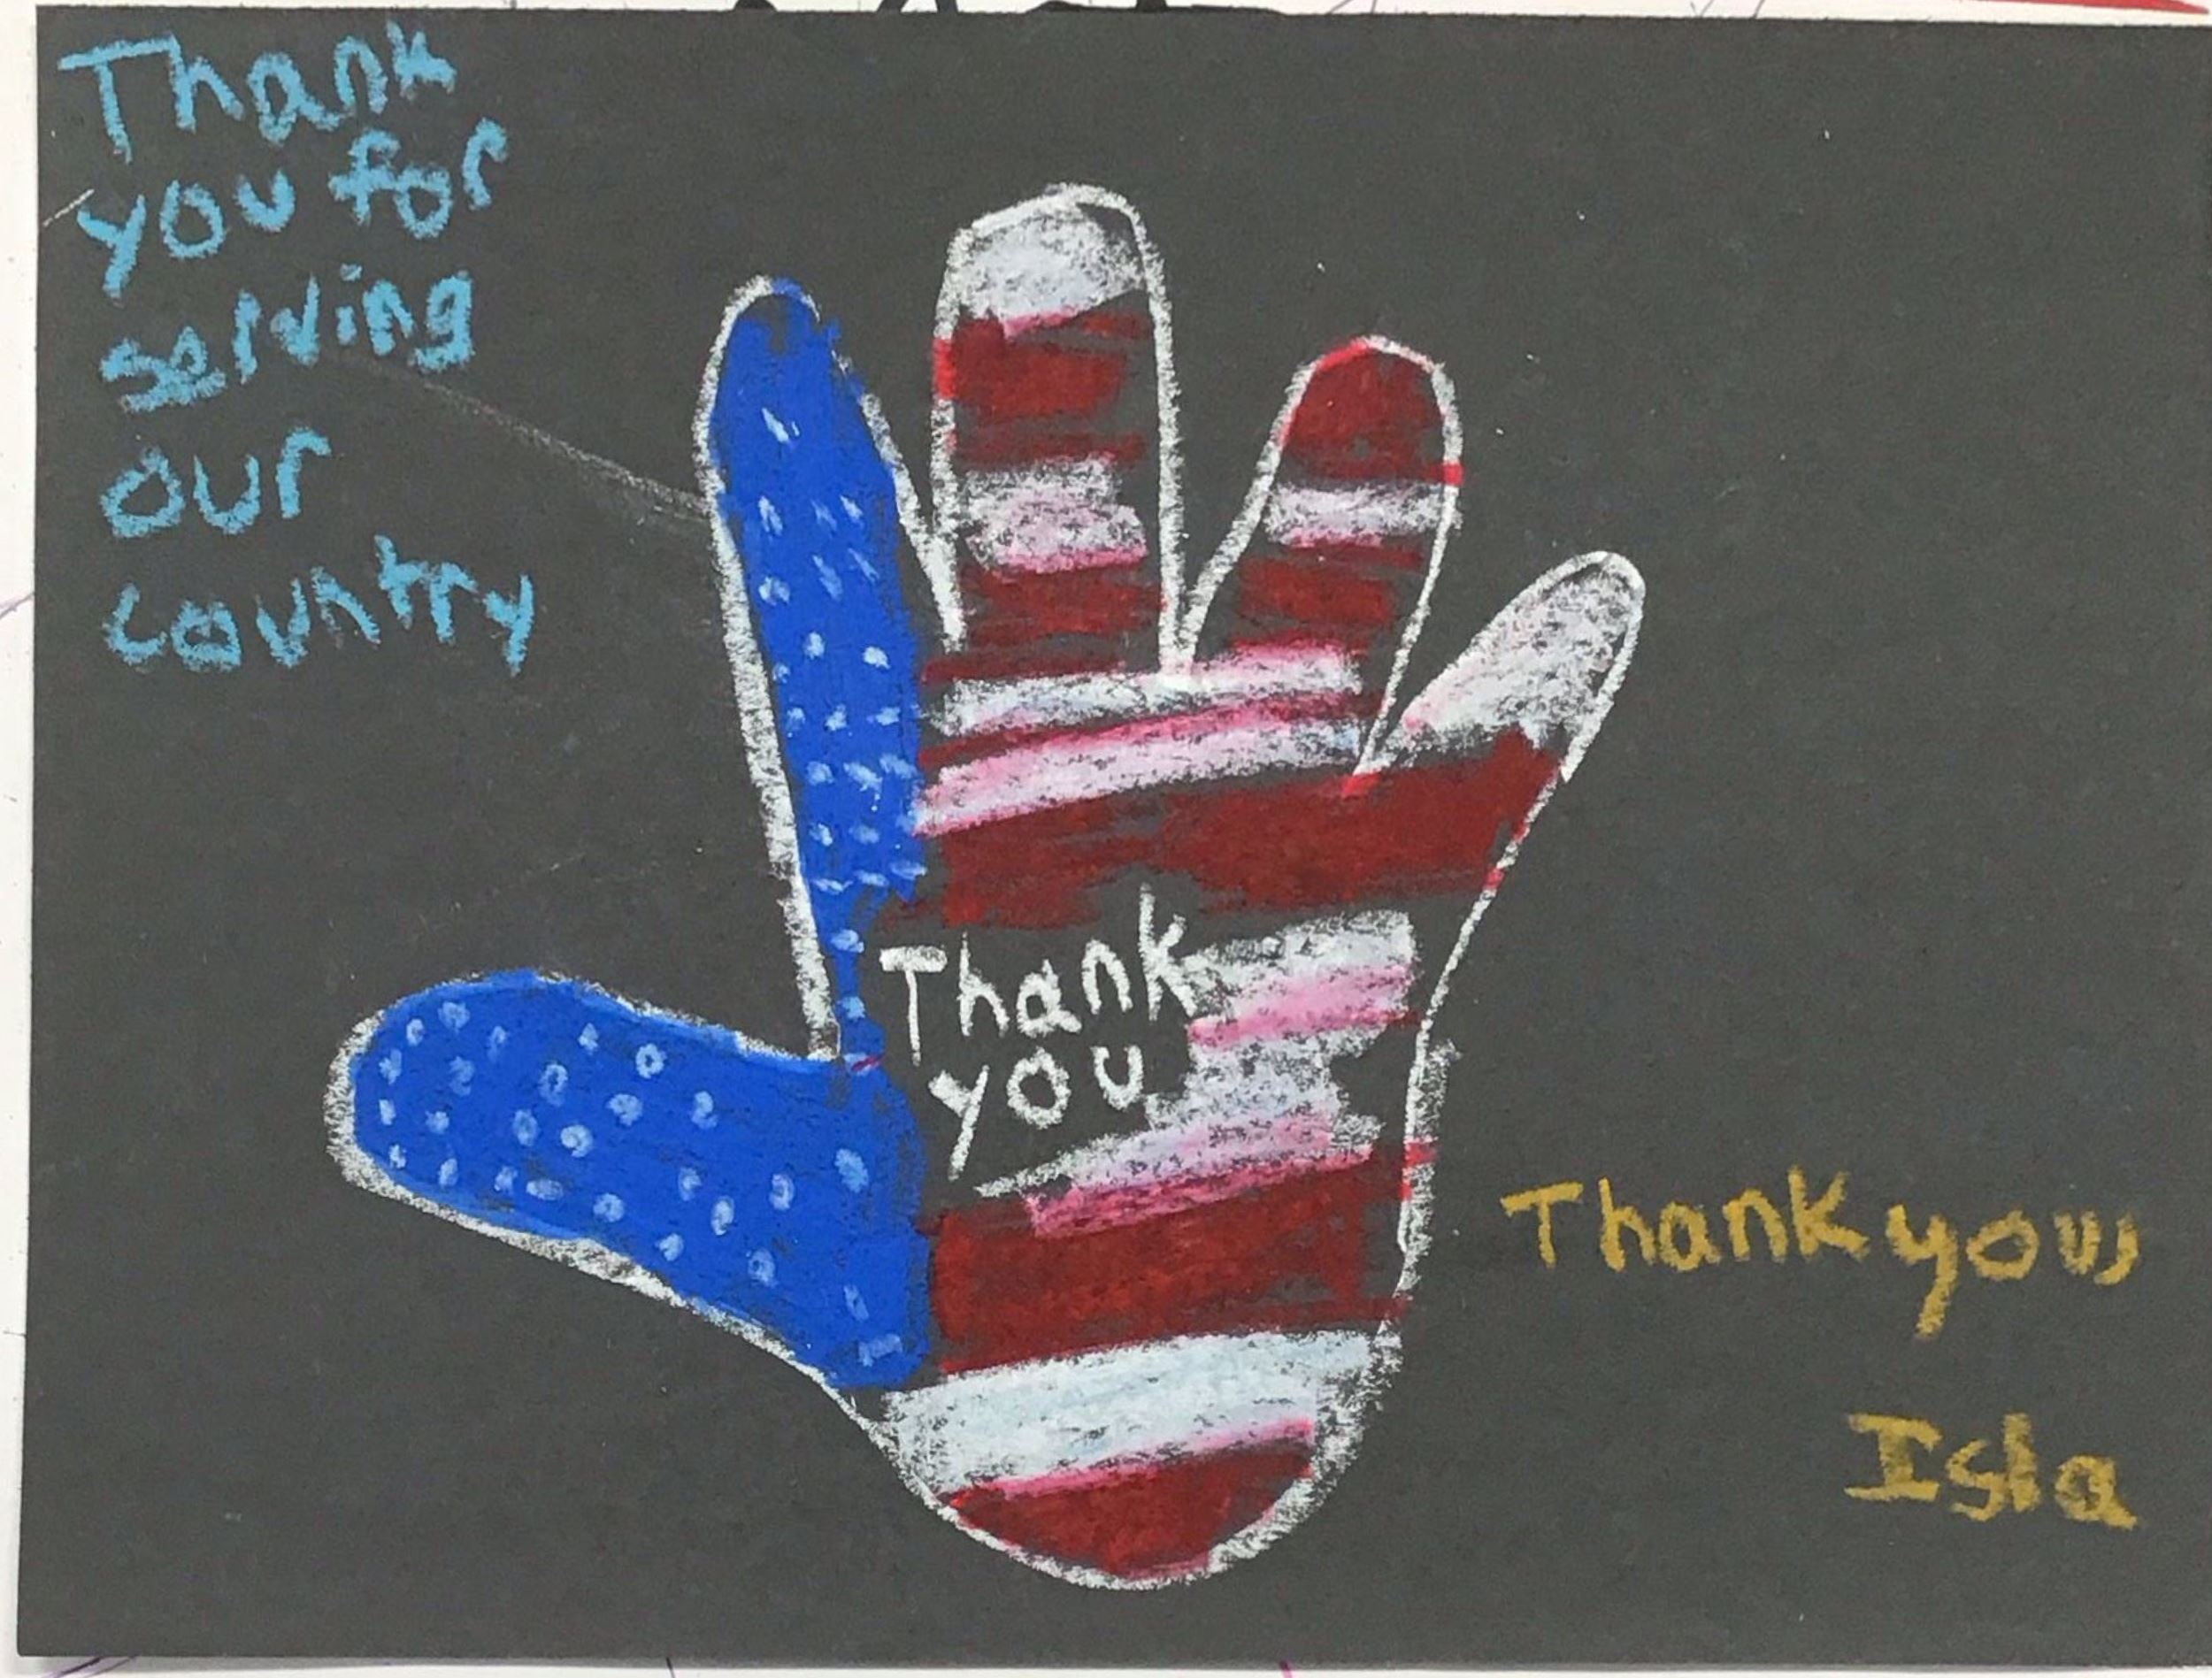 Thank
you for
serving
our
country
Thank
you
Thank you,
Isla